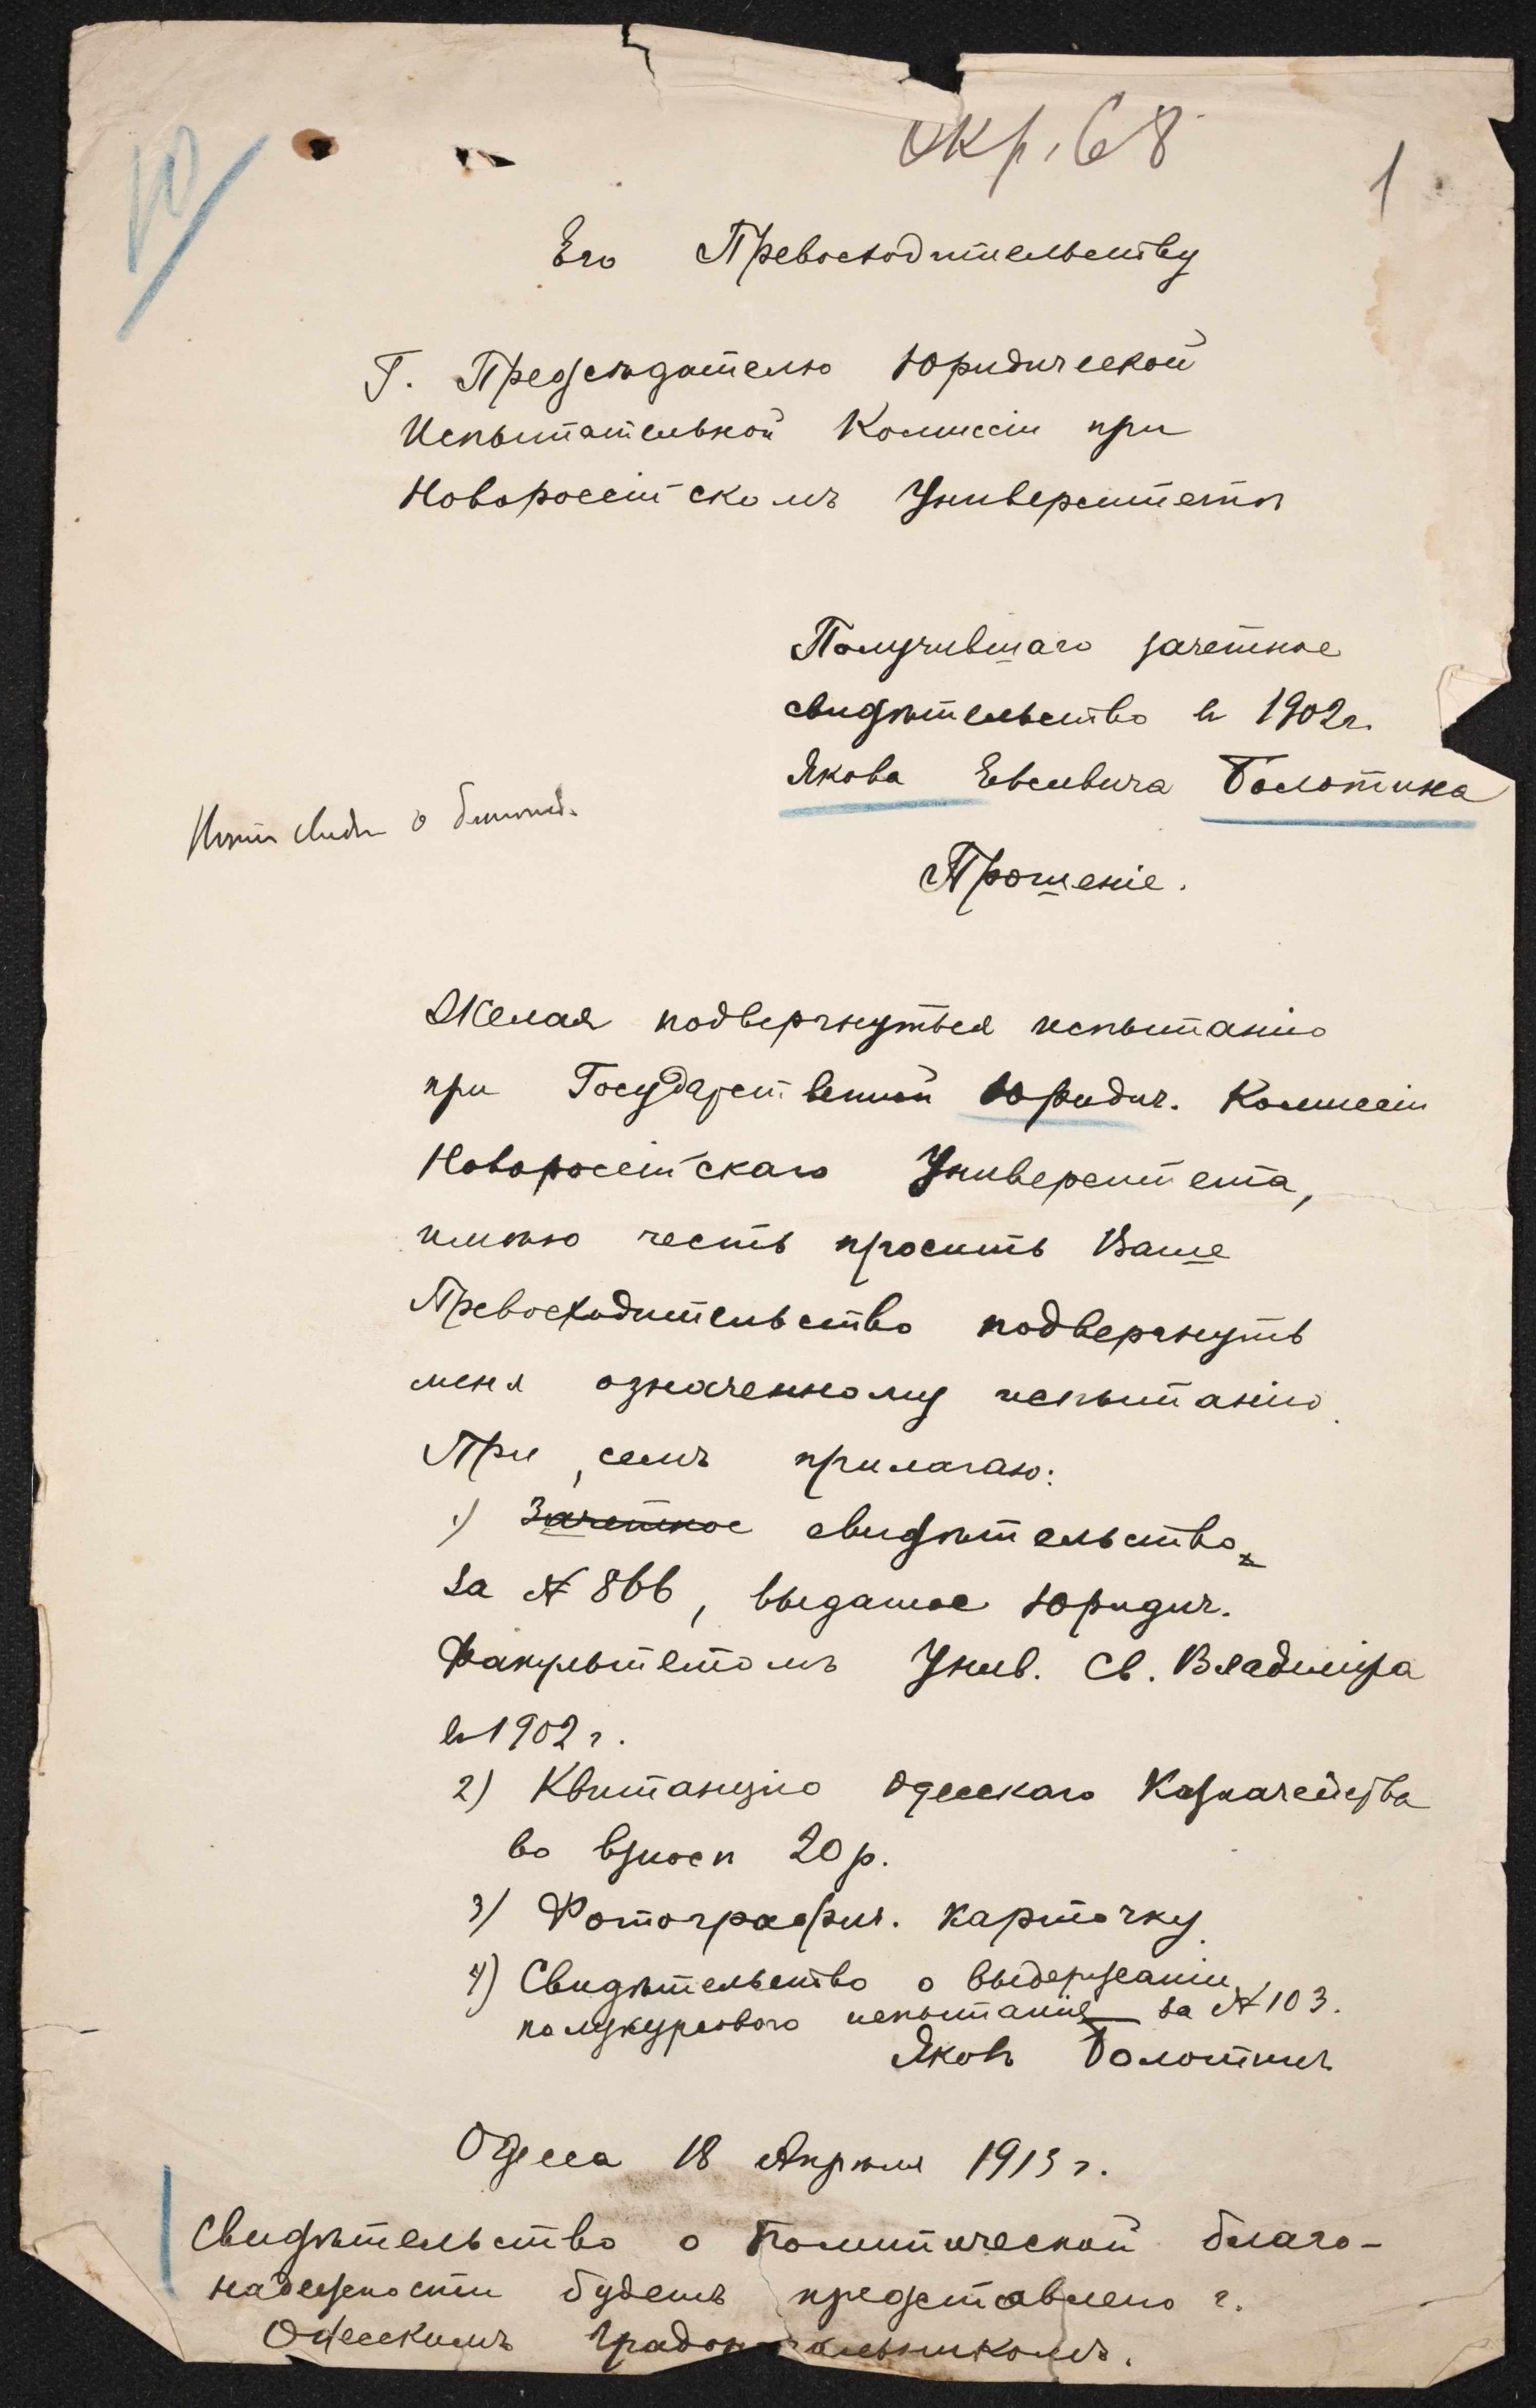 10
окр. 68
1
Его Превосходительству
Г. Предсѣдателю Юридической
Испытательной Комиссіи при
Новороссійскомъ Университетѣ
Получившаго зачетное
свидѣтельство в 1902 г.
Якова Евсевича Болотина
Прошеніе.
Желая подвергнуться испытанію
при Государственной Юридич. Комиссіи
Новороссійскаго Университета,
имѣю честь просить Ваше
Превосходительство подвергнуть
меня означенному испытанію.
При семъ прилагаю:
1) Зачетное свидѣтельство
за № 866, выданое Юридич.
Факультетомъ Унив. Св. Владиміра
в 1902 г.
2) Квитанцію Одесскаго Казначейства
во взносѣ 20 р.
3) Фотографич. карточку
4) Свидѣтельство о выдержаніи
полукурсового испытанія за № 103.
Яковъ Болотинъ
Одесса 18 Апрѣля 1913 г.
Свидѣтельство о политической благо-
надежности будетъ представлено г.
Одесскимъ Градоначальникомъ.